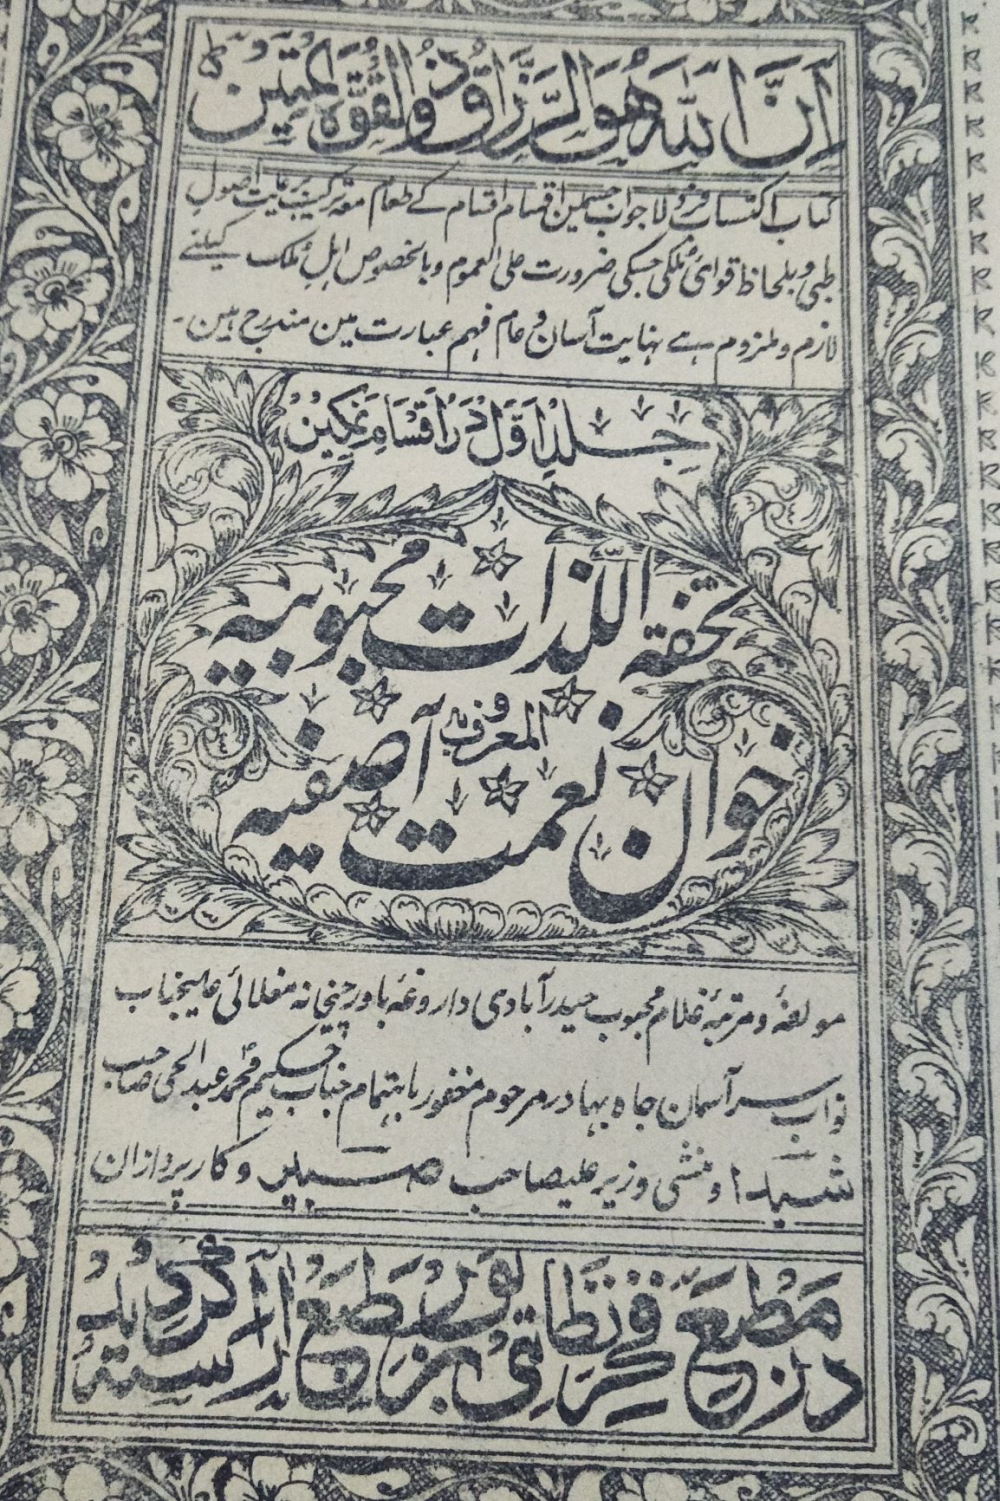 اِنَّ اللّٰهَ هُوَ الرَّزَّاقُ ذُو الْقُوَّةِ الْمَتِیْنُ
کتاب اکتساب فرد لاجواب جسمین اقسام اقسام کے طعام معہ ترکیب برعایت اصول
طبی و بلحاظ قوائ ملکی جسکی ضرورت علی العموم و بالخصوص اہل ملک کیلئے
لازم و ملزوم ہے نہایت آسان و عام فہم عبارت مین مندرج ہین۔
جلد اوّل در اقسام نمکین
تحفۃ اللذات محبوبیہ
المعروف بہ
خوان نعمت آصفیہ
مولفۂ و مرتبۂ غلام محبوب حیدرآبادی داروغۂ باورچیخانہ مغلائی عالیجناب
نواب سر آسمان جاہ بہادر مرحوم مغفور باہتمام جناب حکیم محمد عبدالحی صاحب
شیدا و منشی وزیر علیصاحب و کارپردازان
در مطبع فخر نظامی بزیور طبع آراستہ گردید